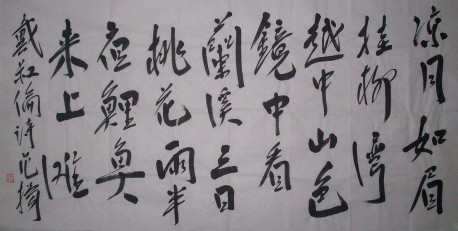 凉月如眉
挂柳灣
越中山色
鏡中看
蘭溪三日
桃花雨半
夜鯉魚
来上灘
戴叔倫詩范